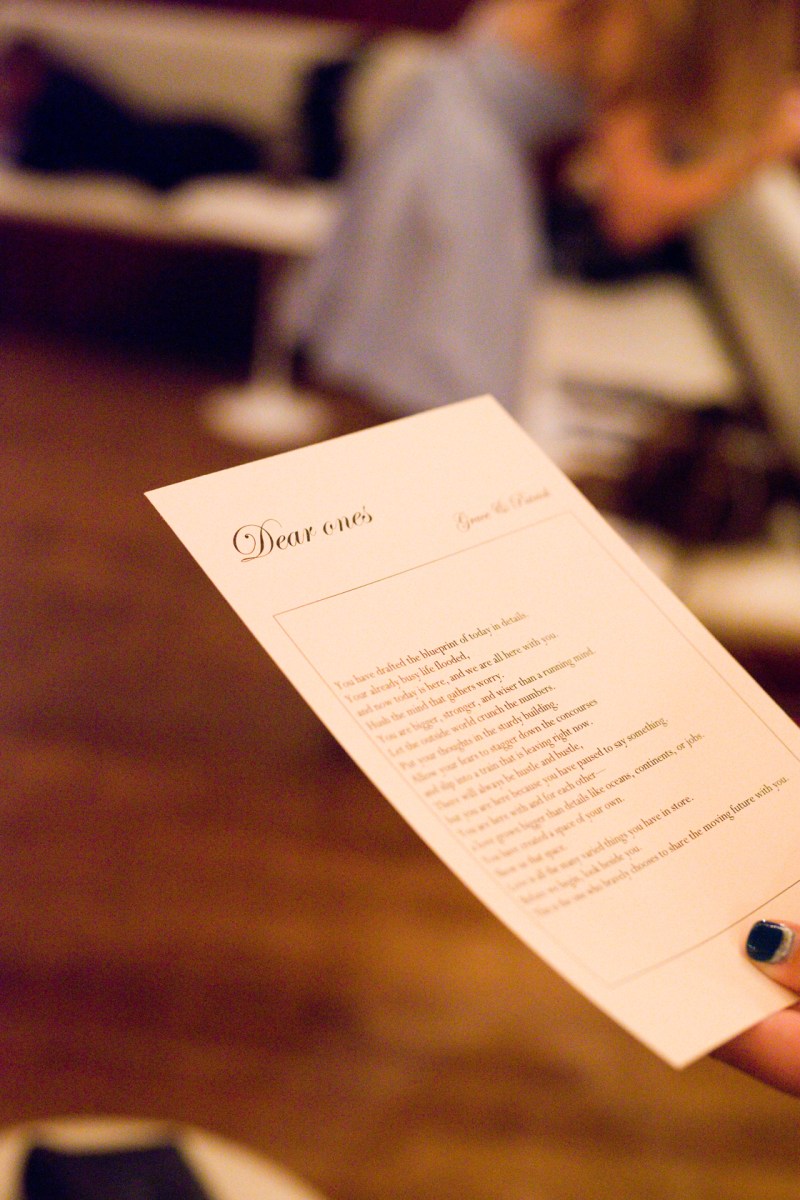 Dear ones
Grace &
You have drafted the blueprint of today in details.
Your already busy life flooded,
and now today is here, and we are all here with you.
Hush the mind that gathers worry.
You are bigger, stronger, and wiser than a running mind.
Let the outside world crunch the numbers.
Put your thoughts in the sturdy building.
Allow your fears to stagger down the concourses
and slip into a train that is leaving right now.
There will always be hustle and bustle,
but you are here because you have paused to say something.
You are here with and for each other—
a love grown bigger than details like oceans, continents, or jobs.
You have created a space of your own.
in that space.
Love is all the many varied things you have in store.
Before we begin, look beside you.
This is the one who bravely chooses to share the moving future with you.